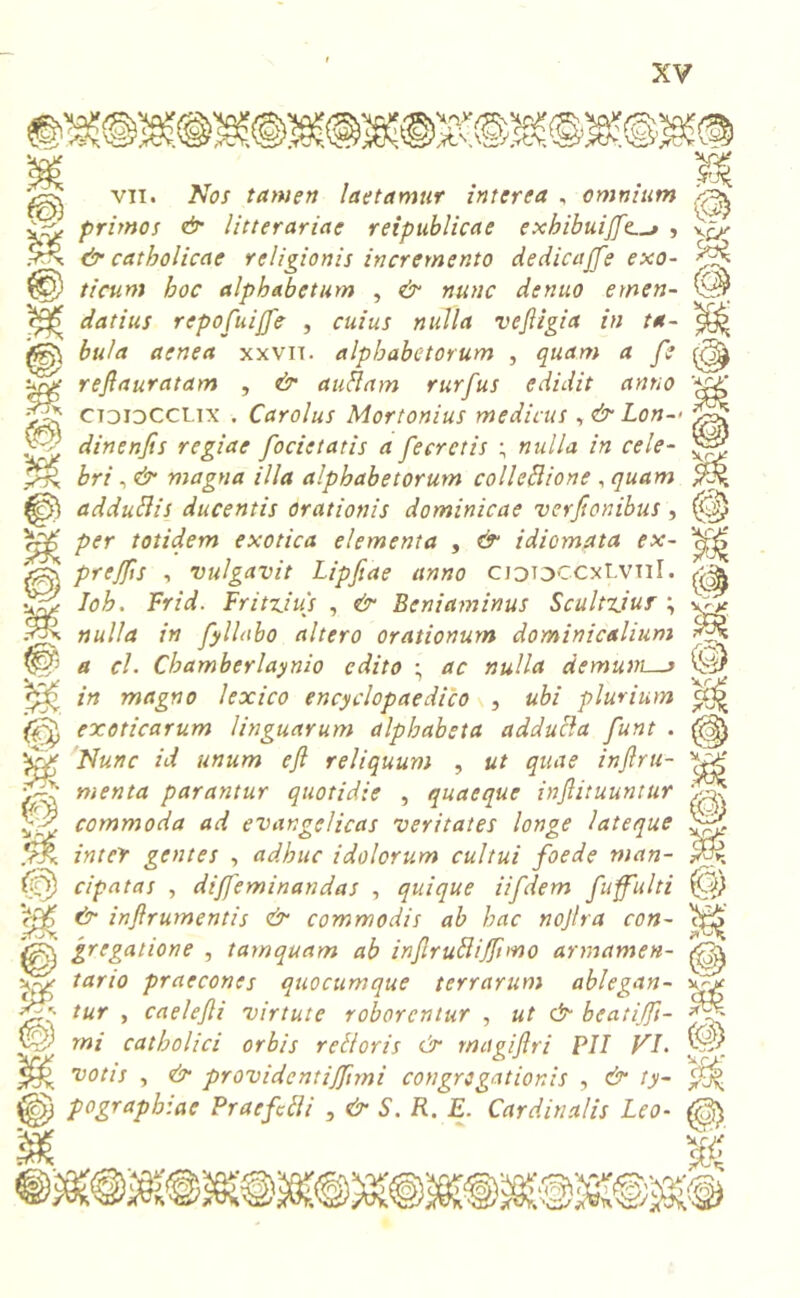 XV
VII. Nos tamen laetamur interea , omnium
primos & litterariae reipublicae exhibuiſſe ,
& catholicae religionis incremento dedicaſſe exo-
ticum hoc alphabetum , & nunc denuo emen-
datius repoſuiſſe , cuius nulla veſtigia in ta-
bula aenea XXVII. alphabetorum , quam a ſe
reſtauratam , & auctam rurſus edidit anno
CIƆIƆCCLIX . Carolus Mortonius medicus , & Lon-
dinenſis regiae ſocietatis a ſecretis ; nulla in cele-
bri , & magna illa alphabetorum collectione , quam
adductis ducentis orationis dominicae verſionibus ,
per totidem exotica elementa , & idiomata ex-
preſſis , vulgavit Lipſiae anno CIƆIƆCCXLVIII.
Ioh. Frid. Fritzius , & Beniaminus Scultzius ;
nulla in ſyllabo altero orationum dominicalium
a cl. Chamberlaynio edito ; ac nulla demum
in magno lexico encyclopaedico , ubi plurium
exoticarum linguarum alphabeta adducta ſunt .
Nunc id unum eſt reliquum , ut quae inſtru-
menta parantur quotidie , quaeque inſtituuntur
commoda ad evangelicas veritates longe lateque
inter gentes , adhuc idolorum cultui foede man-
cipatas , diſſeminandas , quique iiſdem ſuffulti
& inſtrumentis & commodis ab hac noſtra con-
gregatione , tamquam ab inſtructiſſimo armamen-
tario praecones quocumque terrarum ablegan-
tur , caeleſti virtute roborentur , ut & beatiſſi-
mi catholici orbis rectoris & magiſtri PII VI.
votis , & providentiſſimi congregationis , & ty-
pographiae Praefecti , & S. R. E. Cardinalis Leo-